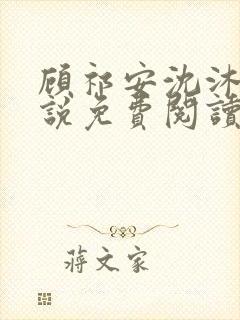 顧祁安沈沐
說免費閱讀
蔣文家